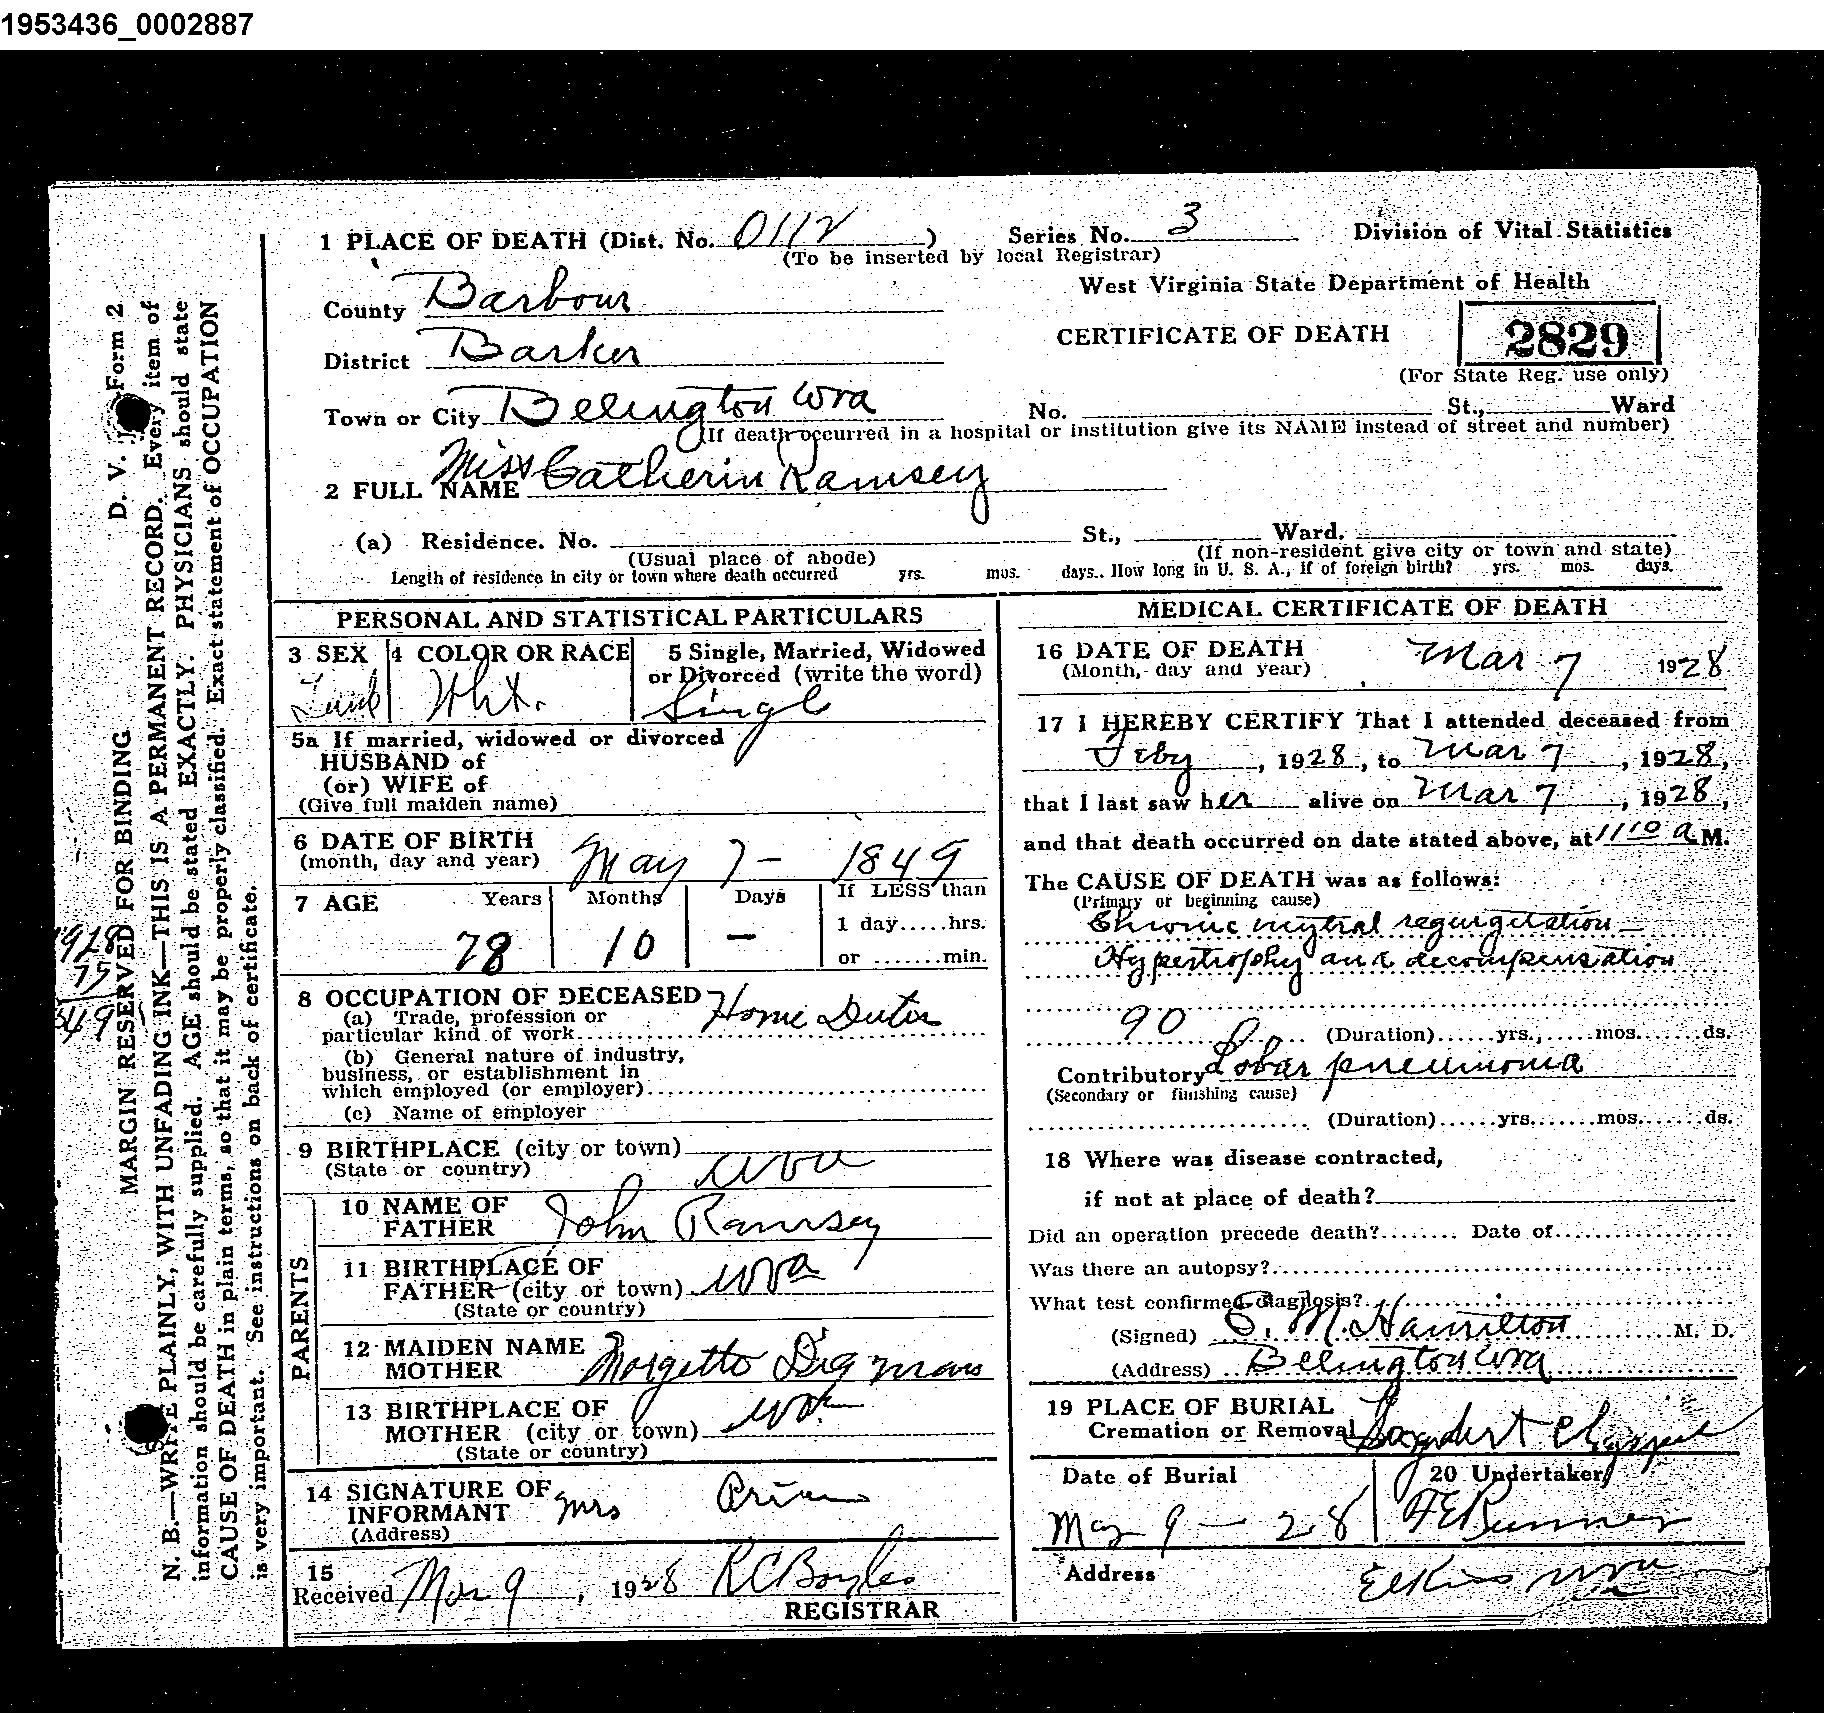 1953436_0002887
1 PLACE OF DEATH (Dist. No. 0112) Series No. 3 Division of Vital Statistics
(To be inserted by local Registrar)
County Barbour West Virginia State Department of Health
CERTIFICATE OF DEATH 2829
District Barker (For State Reg. use only)
Town or City Belington Wva No. St., Ward
(If death occurred in a hospital or institution give its NAME instead of street and number)
2 FULL NAME Miss Catherin Ramsey
(a) Residence. No. St., Ward.
(Usual place of abode) (If non-resident give city or town and state)
Length of residence in city or town where death occurred yrs. mos. days. How long in U. S. A., if of foreign birth? yrs. mos. days.
PERSONAL AND STATISTICAL PARTICULARS
3 SEX 4 COLOR OR RACE 5 Single, Married, Widowed
or Divorced (write the word)
Single
5a If married, widowed or divorced
HUSBAND of
(or) WIFE of
(Give full maiden name)
6 DATE OF BIRTH
(month, day and year) May 7- 1849
7 AGE Years Months Days If LESS than
1 day.....hrs.
78 10 - or .......min.
8 OCCUPATION OF DECEASED Home
(a) Trade, profession or
particular kind of work
(b) General nature of industry,
business, or establishment in
which employed (or employer)
(c) Name of employer
9 BIRTHPLACE (city or town)
(State or country) wva
PARENTS
10 NAME OF
FATHER John Ramsey
11 BIRTHPLACE OF
FATHER (city or town) wva
(State or country)
12 MAIDEN NAME
MOTHER
13 BIRTHPLACE OF
MOTHER (city or town) wva
(State or country)
14 SIGNATURE OF
INFORMANT Mrs
(Address)
15
Received Mar 9, 1928 R C Boyles
REGISTRAR
MEDICAL CERTIFICATE OF DEATH
16 DATE OF DEATH
(Month, day and year) Mar 7 1928
17 I HEREBY CERTIFY That I attended deceased from
Feby, 1928, to Mar 7, 1928,
that I last saw her alive on Mar 7, 1928,
and that death occurred on date stated above, at 11 10 a M.
The CAUSE OF DEATH was as follows:
(Primary or beginning cause)
Chronic mytral regurgitation -
Hypertrophy and decompensation
90 (Duration)......yrs.,.....mos.......ds.
Contributory Lobar pneumonia
(Secondary or finishing cause)
(Duration)......yrs.......mos.......ds.
18 Where was disease contracted,
if not at place of death?
Did an operation precede death?........ Date of
Was there an autopsy?
What test confirmed diagnosis?
(Signed) E. M. Hamilton M. D.
(Address) Belington Wva
19 PLACE OF BURIAL
Cremation or Removal
Date of Burial 20 Undertaker
Mar 9 - 28
Address Elkins wva
D. V. Form 2
MARGIN RESERVED FOR BINDING
N. B.—WRITE PLAINLY, WITH UNFADING INK—THIS IS A PERMANENT RECORD. Every item of
information should be carefully supplied. AGE should be stated EXACTLY. PHYSICIANS should state
CAUSE OF DEATH in plain terms, so that it may be properly classified. Exact statement of OCCUPATION
is very important. See instructions on back of certificate.
1928